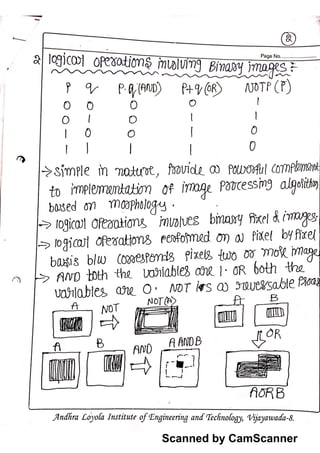 ②
Page No.
2) logical operations involving Binary images :-
P q P.q (AND) P+q (OR) NOTP (P̄)
0 0 0 0 1
0 1 0 1 1
1 0 0 1 0
1 1 1 1 0
→ simple in nature, provide a powerful complement
to implementation of image processing algorithm
based on morphology.
→ logical operations involves binary pixel & images.
→ logical operations performed on a pixel by pixel
basis b/w corresponds pixels two or more image
→ AND both the variables are 1. OR both the
variables are 0. NOT is a reversable
A NOT NOT(A) A B
A B AND A AND B OR
A OR B
Andhra Loyola Institute of Engineering and Technology, Vijayawada-8.
Scanned by CamScanner